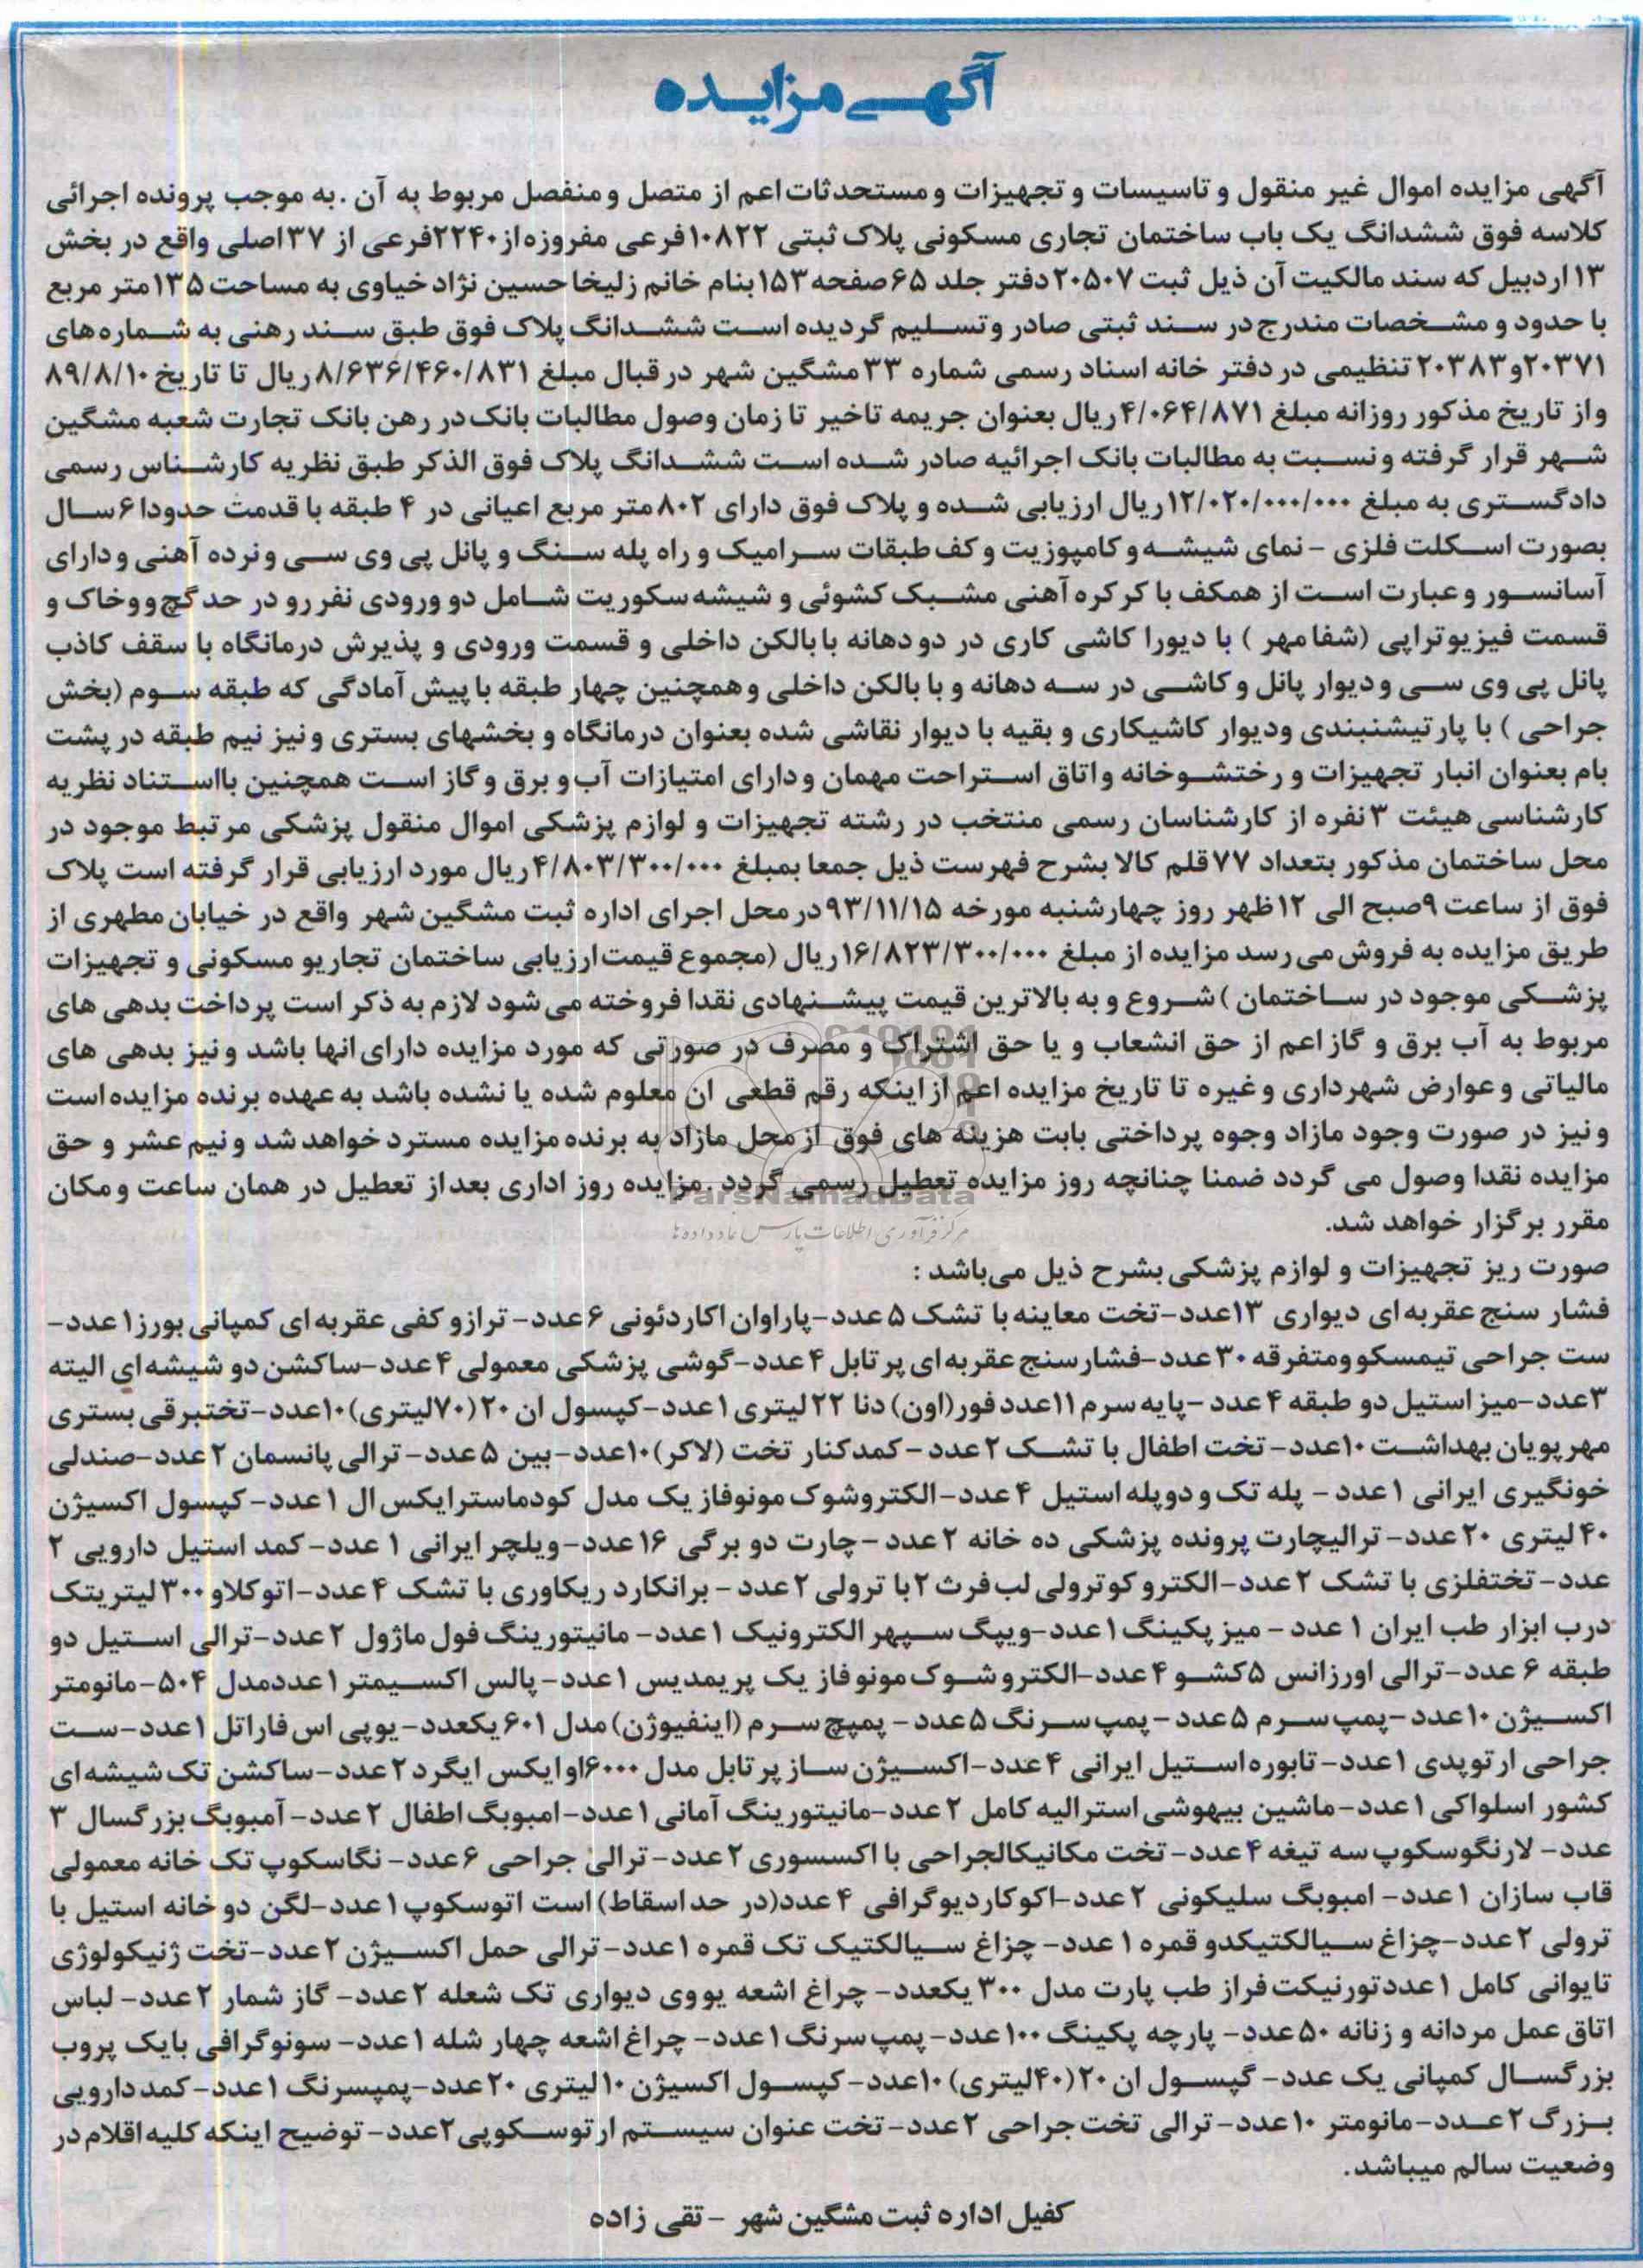 آگهی مزایده
آگهی مزایده اموال غیر منقول و تاسیسات و تجهیزات و مستحدثات اعم از متصل و منفصل مربوط به آن .به موجب پرونده اجرائی
کلاسه فوق ششدانگ یک باب ساختمان تجاری مسکونی پلاک ثبتی ۱۰۸۲۲فرعی مفروزه از۲۲۴۰فرعی از ۳۷اصلی واقع در بخش
۱۳ اردبیل که سند مالکیت آن ذیل ثبت ۲۰۵۰۷دفتر جلد ۶۵صفحه ۱۵۳بنام خانم زلیخا حسین نژاد خیاوی به مساحت ۱۳۵متر مربع
با حدود و مشخصات مندرج در سند ثبتی صادر و تسلیم گردیده است ششدانگ پلاک فوق طبق سند رهنی به شماره های
۲۰۳۷۱و۲۰۳۸۳ تنظیمی در دفتر خانه اسناد رسمی شماره ۳۳مشگین شهر در قبال مبلغ ۸/۶۳۶/۴۶۰/۸۳۱ریال تا تاریخ ۸۹/۸/۱۰
و از تاریخ مذکور روزانه مبلغ ۴/۰۶۴/۸۷۱ریال بعنوان جریمه تاخیر تا زمان وصول مطالبات بانک در رهن بانک تجارت شعبه مشگین
شهر قرار گرفته و نسبت به مطالبات بانک اجرائیه صادر شده است ششدانگ پلاک فوق الذکر طبق نظریه کارشناس رسمی
دادگستری به مبلغ ۱۲/۰۲۰/۰۰۰/۰۰۰ریال ارزیابی شده و پلاک فوق دارای ۸۰۲متر مربع اعیانی در ۴ طبقه با قدمت حدودا ۶سال
بصورت اسکلت فلزی - نمای شیشه و کامپوزیت و کف طبقات سرامیک و راه پله سنگ و پانل پی وی سی و نرده آهنی و دارای
آسانسور و عبارت است از همکف با کرکره آهنی مشبک کشوئی و شیشه سکوریت شامل دو ورودی نفر رو در حد گچ و وخاک و
قسمت فیزیوتراپی (شفا مهر ) با دیورا کاشی کاری در دو دهانه با بالکن داخلی و قسمت ورودی و پذیرش درمانگاه با سقف کاذب
پانل پی وی سی و دیوار پانل و کاشی در سه دهانه و با بالکن داخلی و همچنین چهار طبقه با پیش آمادگی که طبقه سوم (بخش
جراحی ) با پارتیشنبندی ودیوار کاشیکاری و بقیه با دیوار نقاشی شده بعنوان درمانگاه و بخشهای بستری و نیز نیم طبقه در پشت
بام بعنوان انبار تجهیزات و رختشوخانه و اتاق استراحت مهمان و دارای امتیازات آب و برق و گاز است همچنین بااستناد نظریه
کارشناسی هیئت ۳نفره از کارشناسان رسمی منتخب در رشته تجهیزات و لوازم پزشکی اموال منقول پزشکی مرتبط موجود در
محل ساختمان مذکور بتعداد ۷۷قلم کالا بشرح فهرست ذیل جمعا بمبلغ ۴/۸۰۳/۳۰۰/۰۰۰ریال مورد ارزیابی قرار گرفته است پلاک
فوق از ساعت ۹صبح الی ۱۲ظهر روز چهارشنبه مورخه ۹۳/۱۱/۱۵در محل اجرای اداره ثبت مشگین شهر واقع در خیابان مطهری از
طریق مزایده به فروش می رسد مزایده از مبلغ ۱۶/۸۲۳/۳۰۰/۰۰۰ریال (مجموع قیمت ارزیابی ساختمان تجاریو مسکونی و تجهیزات
پزشکی موجود در ساختمان ) شروع و به بالاترین قیمت پیشنهادی نقدا فروخته می شود لازم به ذکر است پرداخت بدهی های
مربوط به آب برق و گاز اعم از حق انشعاب و یا حق اشتراک و مصرف در صورتی که مورد مزایده دارای انها باشد و نیز بدهی های
مالیاتی و عوارض شهرداری و غیره تا تاریخ مزایده اعم از اینکه رقم قطعی ان معلوم شده یا نشده باشد به عهده برنده مزایده است
و نیز در صورت وجود مازاد وجوه پرداختی بابت هزینه های فوق از محل مازاد به برنده مزایده مسترد خواهد شد و نیم عشر و حق
مزایده نقدا وصول می گردد ضمنا چنانچه روز مزایده تعطیل رسمی گردد .مزایده روز اداری بعد از تعطیل در همان ساعت و مکان
ParsNamadData
مقرر برگزار خواهد شد.
مرکز فرآوری اطلاعات پارس نماد داده ها
صورت ریز تجهیزات و لوازم پزشکی بشرح ذیل می‌باشد :
فشار سنج عقربه ای دیواری ۱۳عدد-تخت معاینه با تشک ۵عدد-پاراوان اکاردئونی ۶عدد- ترازو کفی عقربه ای کمپانی بورز۱عدد-
ست جراحی تیمسکوومتفرقه ۳۰عدد-فشارسنج عقربه ای پرتابل ۴عدد-گوشی پزشکی معمولی ۴عدد-ساکشن دو شیشه ای الیته
۳عدد-میز استیل دو طبقه ۴عدد -پایه سرم ۱۱عدد فور(اون) دنا ۲۲لیتری ۱عدد-کپسول ان ۲۰(۷۰لیتری)۱۰عدد-تختبرقی بستری
مهر پویان بهداشت ۱۰عدد- تخت اطفال با تشک ۲عدد - کمد کنار تخت (لاکر)۱۰عدد- بین ۵عدد- ترالی پانسمان ۲عدد-صندلی
خونگیری ایرانی ۱عدد - پله تک و دوپله استیل ۴عدد-الکتروشوک مونوفاز یک مدل کودماسترایکس ال ۱عدد- کپسول اکسیژن
۴۰لیتری ۲۰عدد- ترالیچارت پرونده پزشکی ده خانه ۲عدد -چارت دو برگی ۱۶عدد-ویلچر ایرانی ۱ عدد-کمد استیل دارویی ۲
عدد- تختفلزی با تشک ۲عدد-الکترو کوترولی لب فرث ۲با ترولی ۲عدد - برانکارد ریکاوری با تشک ۴عدد-اتوکلاو ۳۰۰لیتریتک
درب ابزار طب ایران ۱ عدد - میز پکینگ ۱عدد-ویپگ سپهر الکترونیک ۱عدد- مانیتورینگ فول ماژول ۲عدد-ترالی استیل دو
طبقه ۶عدد-ترالی اورزانس ۵کشو ۴عدد-الکتروشوک مونوفاز یک پریمدیس ۱عدد- پالس اکسیمتر۱عددمدل ۵۰۴-مانومتر
اکسیژن ۱۰عدد-پمپ سرم ۵عدد - پمپ سرنگ ۵عدد - پمپچ سرم (اینفیوژن) مدل ۶۰۱یکعدد- یوپی اس فاراتل ۱عدد-ست
جراحی ارتوپدی ۱عدد- تابوره استیل ایرانی ۴عدد-اکسیژن ساز پرتابل مدل ۶۰۰۰اوایکس ایگرد ۲عدد-ساکشن تک شیشه ای
کشور اسلواکی ۱عدد-ماشین بیهوشی استرالیه کامل ۲عدد-مانیتورینگ آمانی ۱عدد-امبوبگ اطفال ۲عدد- آمبوبگ بزرگسال ۳
عدد- لارنگوسکوپ سه تیغه ۴عدد- تخت مکانیکالجراحی با اکسسوری ۲عدد- ترالی جراحی ۶عدد- نگاسکوپ تک خانه معمولی
قاب سازان ۱عدد- امبوبگ سلیکونی ۲عدد-اکوکاردیوگرافی ۴عدد(در حد اسقاط) است اتوسکوپ ۱عدد-لگن دو خانه استیل با
ترولی ۲عدد-چزاغ سیالکتیکدو قمره ۱عدد- چزاغ سیالکتیک تک قمره ۱عدد- ترالی حمل اکسیژن ۲عدد-تخت ژنیکولوژی
تایوانی کامل ۱عددتورنیکت فراز طب پارت مدل ۳۰۰یکعدد- چراغ اشعه یووی دیواری تک شعله ۲عدد- گاز شمار ۲عدد- لباس
اتاق عمل مردانه و زنانه ۵۰عدد- پارچه پکینگ ۱۰۰عدد- پمپ سرنگ ۱عدد- چراغ اشعه چهار شله ۱عدد- سونوگرافی بایک پروب
بزرگسال کمپانی یک عدد- گپسول ان ۲۰(۴۰لیتری)۱۰عدد- کپسول اکسیژن ۱۰لیتری ۲۰عدد-پمپسرنگ ۱عدد- کمد دارویی
بزرگ ۲عدد-مانومتر ۱۰عدد- ترالی تخت جراحی ۲عدد- تخت عنوان سیستم ارتوسکوپی۲عدد- توضیح اینکه کلیه اقلام در
وضعیت سالم میباشد.
کفیل اداره ثبت مشگین شهر - تقی زاده